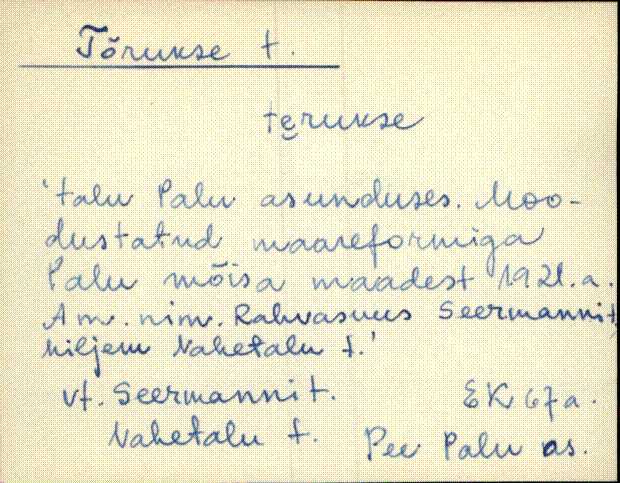 Tõrukse t.
te̮rukse
'talu Palu asunduses. Moo-
dustatud maareformiga
Palu mõisa maadest 1921.a.
Am. nim. Rahvasuus Seermanni t,
hiljem Nahetalu t.'
vt. Seermanni t. EK 67a.
Nahetalu t. Pee Palu as.